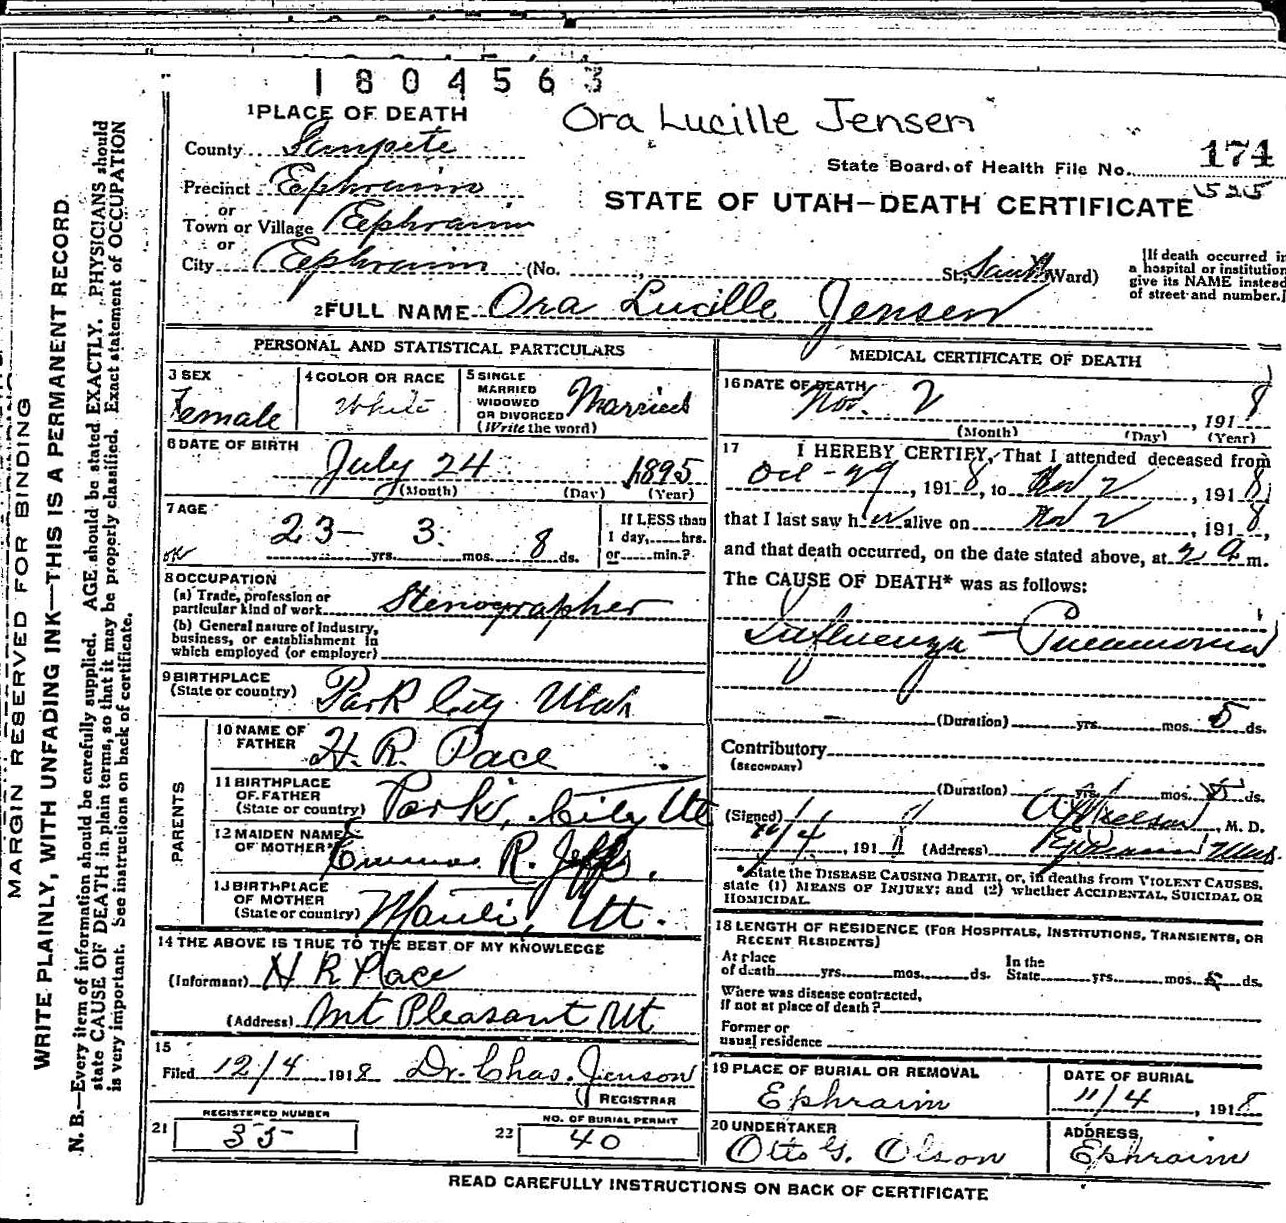 1804563
Ora Lucille Jensen
1 PLACE OF DEATH
County Sanpete
State Board of Health File No. 174
1525
Precinct Ephraim
or
STATE OF UTAH—DEATH CERTIFICATE
Town or Village Ephraim
or
City Ephraim (No. St., South Ward)
[If death occurred in a hospital or institution give its NAME instead of street and number.]
2 FULL NAME Ora Lucille Jensen
PERSONAL AND STATISTICAL PARTICULARS
3 SEX
Female
4 COLOR OR RACE
White
5 SINGLE
MARRIED
WIDOWED
OR DIVORCED
(Write the word)
Married
6 DATE OF BIRTH
July 24 1895
(Month) (Day) (Year)
7 AGE
23 yrs. 3 mos. 8 ds.
If LESS than
1 day, hrs.
or min.?
8 OCCUPATION
(a) Trade, profession or
particular kind of work Stenographer
(b) General nature of industry,
business, or establishment in
which employed (or employer)
9 BIRTHPLACE
(State or country) Park City Utah
PARENTS
10 NAME OF
FATHER H. R. Pace
11 BIRTHPLACE
OF FATHER
(State or country) Park City Ut
12 MAIDEN NAME
OF MOTHER Emma R. Jeffs.
13 BIRTHPLACE
OF MOTHER
(State or country) Manti, Ut.
14 THE ABOVE IS TRUE TO THE BEST OF MY KNOWLEDGE
(Informant) H R Pace
(Address) Mt Pleasant Ut
15
Filed 12/4 1918 Dr. Chas. Jenson
REGISTRAR
21 REGISTERED NUMBER
35
22 NO. OF BURIAL PERMIT
40
MEDICAL CERTIFICATE OF DEATH
16 DATE OF DEATH
Nov. 2, 1918
(Month) (Day) (Year)
17 I HEREBY CERTIFY, That I attended deceased from
Oct-29, 1918, to Nov 2, 1918,
that I last saw her alive on Nov 2, 1918,
and that death occurred, on the date stated above, at 2 a m.
The CAUSE OF DEATH* was as follows:
Influenza - Pneumonia
(Duration) yrs. mos. 5 ds.
Contributory
(SECONDARY)
(Duration) yrs. mos. ds.
(Signed) M. D.
11/4, 191 (Address) Ephraim Utah
*State the DISEASE CAUSING DEATH, or, in deaths from VIOLENT CAUSES,
state (1) MEANS OF INJURY; and (2) whether ACCIDENTAL, SUICIDAL OR
HOMICIDAL.
18 LENGTH OF RESIDENCE (FOR HOSPITALS, INSTITUTIONS, TRANSIENTS, OR
RECENT RESIDENTS)
At place of death yrs. mos. ds. In the State yrs. mos. ds.
Where was disease contracted,
if not at place of death?
Former or
usual residence
19 PLACE OF BURIAL OR REMOVAL
Ephraim
DATE OF BURIAL
11/4, 1918
20 UNDERTAKER
Otto G. Olson
ADDRESS
Ephraim
READ CAREFULLY INSTRUCTIONS ON BACK OF CERTIFICATE
MARGIN RESERVED FOR BINDING
WRITE PLAINLY, WITH UNFADING INK—THIS IS A PERMANENT RECORD.
N. B.—Every item of information should be carefully supplied. AGE should be stated EXACTLY. PHYSICIANS should
state CAUSE OF DEATH in plain terms, so that it may be properly classified. Exact statement of OCCUPATION
is very important. See instructions on back of certificate.